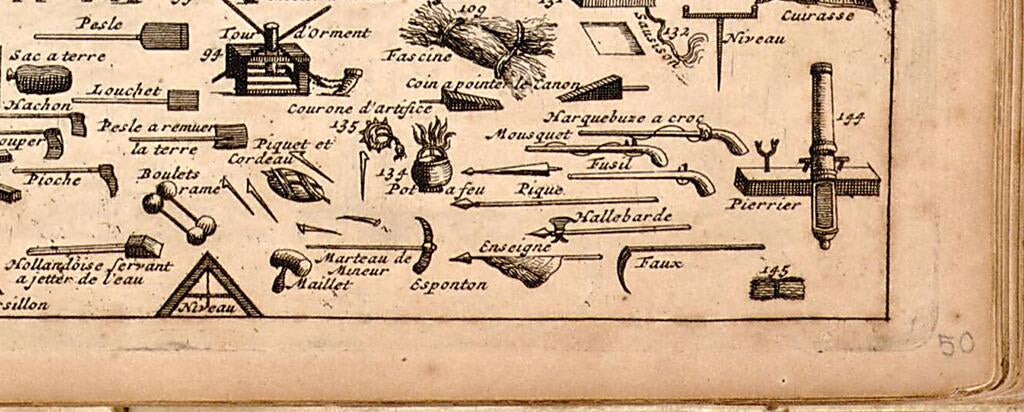 109
132
Cuirasse
Pesle
Tour d'Orment
Saucisson
Niveau
94
Fascine
Sac a terre
Coin a pointer le canon
Louchet
Courone d'artifice
Hachon
Harquebuze a croc
144
135
Mousquet
Pesle a remuer
la terre
Piquet et
Cordeau
Fusil
Pioche
Boulets
ramé
134
Pot a feu
Pique
Pierrier
Hallebarde
Enseigne
Hollandoise servant
a jetter de l'eau
Marteau de
Mineur
Faux
145
Maillet
Esponton
Niveau
50